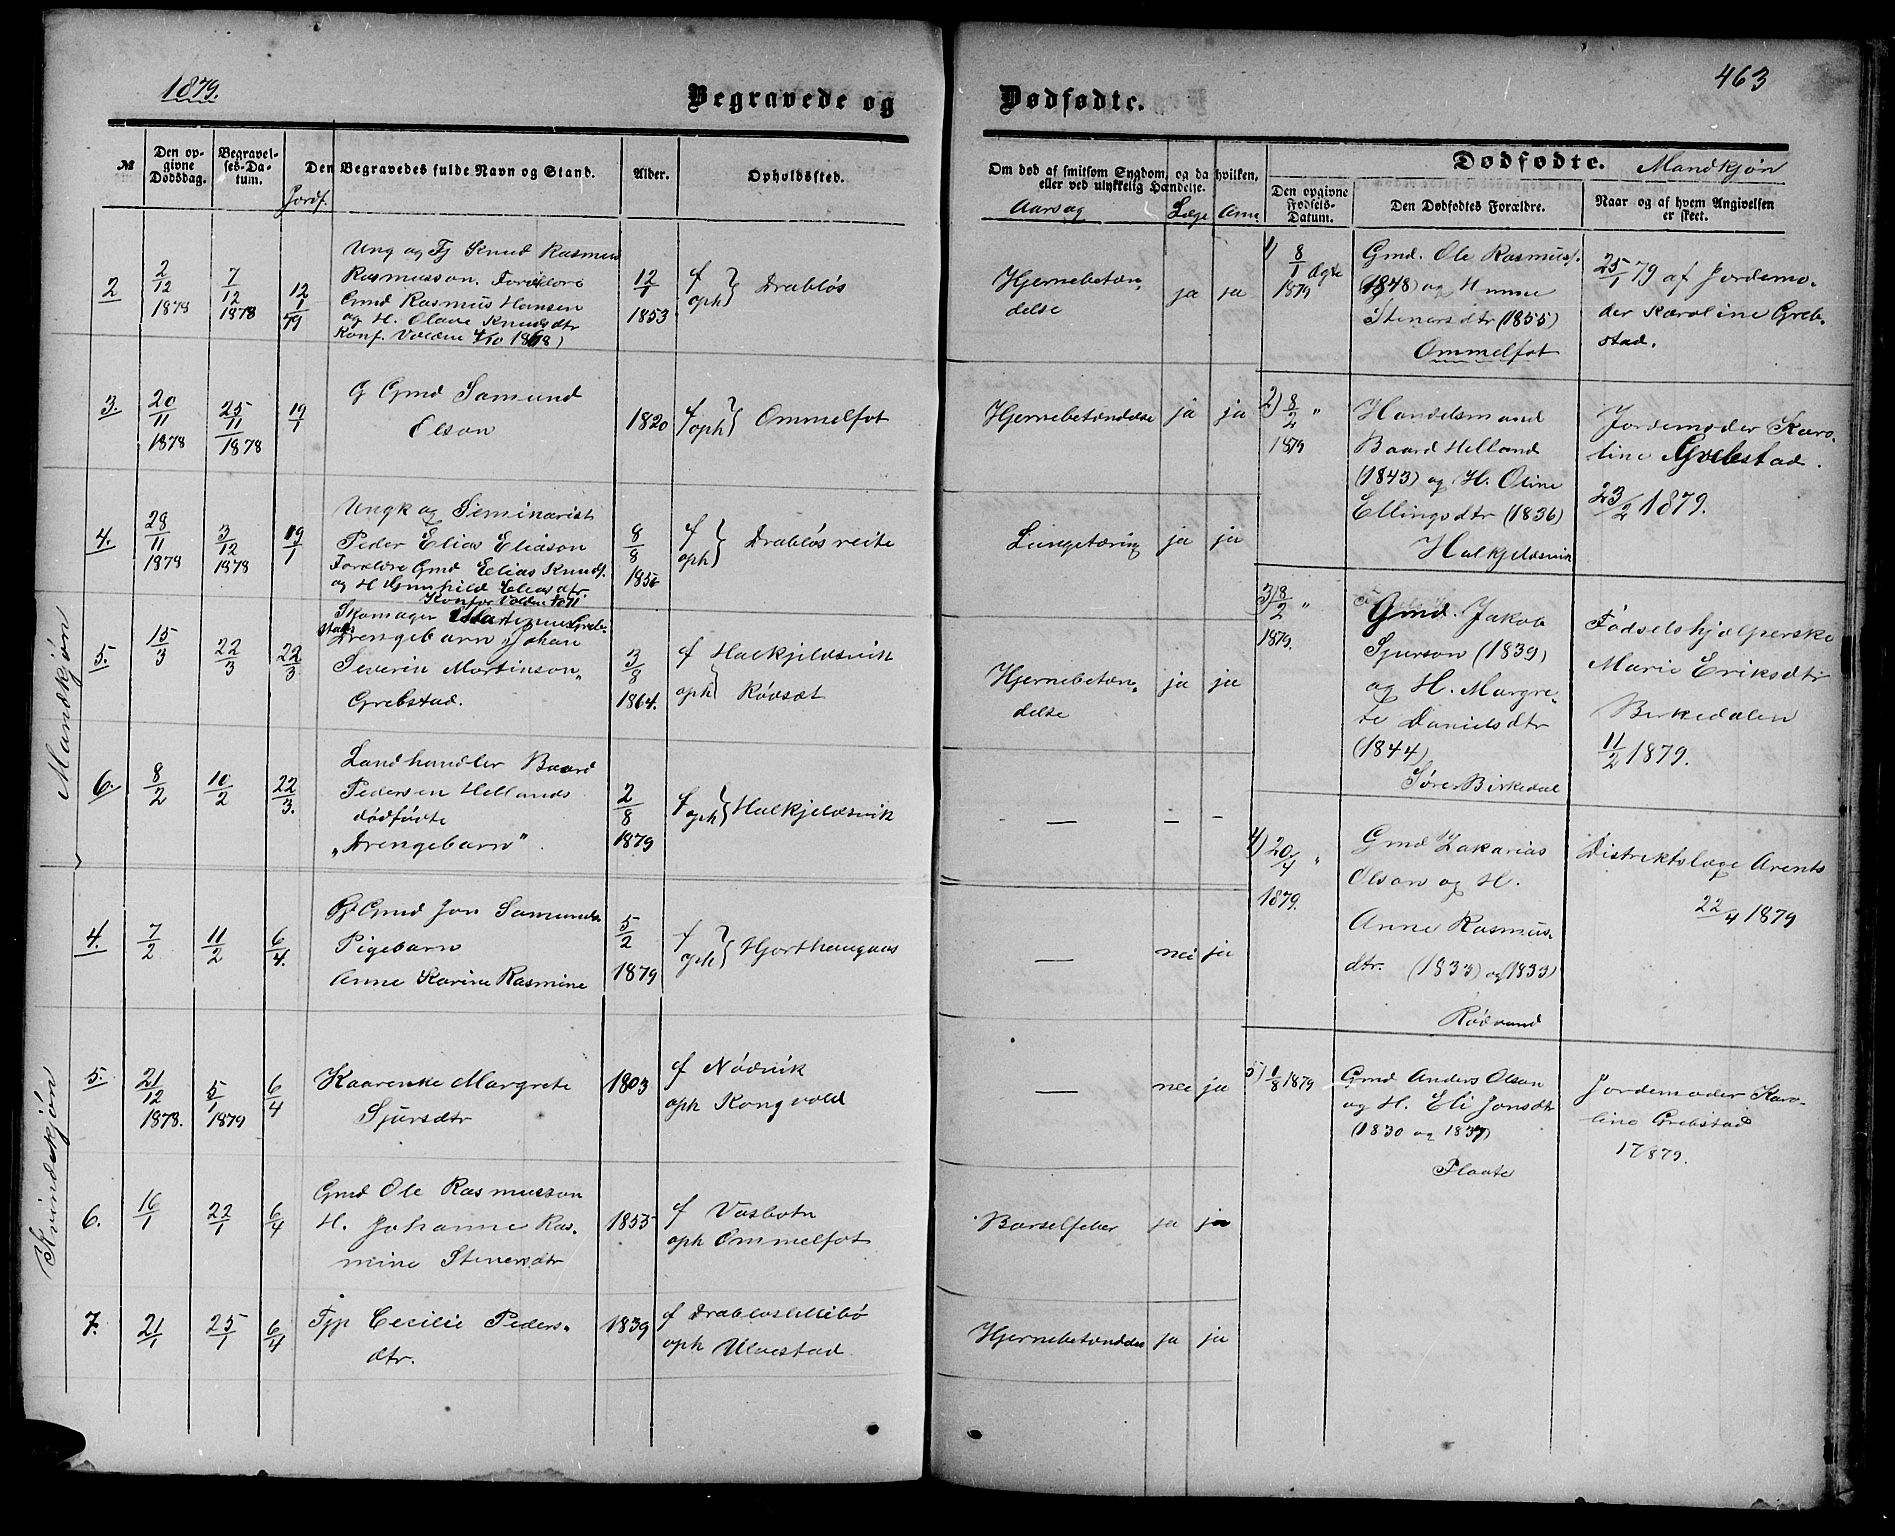 1879.
Begravede og
№
Den op-
givne
Dødsdag.
Begravel-
ses-Da-
tum.
Jordf.
Den Begravedes fulde Navn og Stand.
Alder.
Opholdssted.
Mandkjøn
2
2/12 1878
7/12 1878
12/1 79
Ung og Fj Knud Rasmus
Rasmusson. Forældre
Gmd Rasmus Hansen
og H. Olave Knudsdtr
Konf. Volden 4/10 1868)
12/1 1853
f
oph } Drabløs
3.
20/11 1878
25/11 1878
19/1
G Gmd Samund
Olson
1820
f
oph } Ommelfot
4.
28/11 1878
3/12 1878
19/1
Ungk og Seminarist
Peder Elias Eliason
Forældre Gmd Elias Knuds.
og H Gunhild Eliasdtr.
8/8
f
oph } Drabløsreite
5.
15/3
22/3
22/3
Skomager Martinus Greb-
stads
Drengebarn Johan
Severin Martinson
Grebstad.
3/8 1864.
f Halkjeldsvik
oph } Rødsæt
6.
8/2
10/2
22/3.
Landhandler Baard
Pedersen Hellands
dødfødte
„Drengebarn"
2/8 1879
f
oph } Halkjeldsvik
Kvindekjøn
4.
7/2
11/2
6/4.
Gmd Jon Samunds
Pigebarn
Anne Karine Rasmine
5/2 1879
f
oph } Hjorthaugaas
5.
21/12 1878.
5/1 1879
6/4
Kaarenke Margrete
Sjursdtr
1803
f Nødvik
oph Kongsvold
6.
16/1
22/1
6/4
Gmd Ole Rasmusson
H. Johanne Ras-
mine Stenersdtr
1855
f Vasbotn
oph Ommelfot
7.
21/1
25/1
6/4
Tjp Cecilie Peders-
dtr.
1839
f Drabløslillebø
oph Ulvestad
463
Dødfødte.
Om død af smitsom Sygdom, og da hvilken,
eller ved ulykkelig Hændelse.
Aarsag
Læge
Anm
Hjernebetæn-
delse
ja
ja
Hjernebetændelse
ja
ja
Lungetæring
ja
ja
Hjernebetæn-
delse
ja
ja
—
—
—
—
nei
ja
—
nei
ja
Barselfeber
ja
ja
Hjernebetændelse
ja
ja
Dødfødte. Mandkjøn
Den opgivne
Fødsels-
Datum.
Den Dødfødtes Forældre.
Naar og af hvem Angivelsen
er skeet.
1) 8/1 ægte 1879
Gmd. Ole Rasmuss.
(1848) og Hanne
Stenersdtr (1855)
Ommelfot
25/1 79 af Jordemo-
der Karoline Greb-
stad.
2) 8/2 " 1879
Handelsmand
Baard Helland
(1843) og H. Oline
Ellingsdtr (1836)
Halkjeldsvik
Jordemoder Karo-
line Grebstad.
23/2 1879.
3) 8/2 " 1879.
Gmd. Jakob
Sjurson (1839)
og H. Margre-
te Danielsdtr
(1844)
Søre Birkedal
Fødselshjælperske
Marie Eriksdtr
Birkedalen
11/2 1879.
4) 20/4 " 1879.
Gmd Zakarias
Olson og H.
Anne Rasmus-
dtr. (1833) og (1833)
Rødvand
Distriktslæge Arents
22/4 1879
5) 1/8 1879
Gmd Anders Olson
og H. Eli Jonsdtr
(1830 og 1837)
Flaate
Jordemoder Karo-
line Grebstad